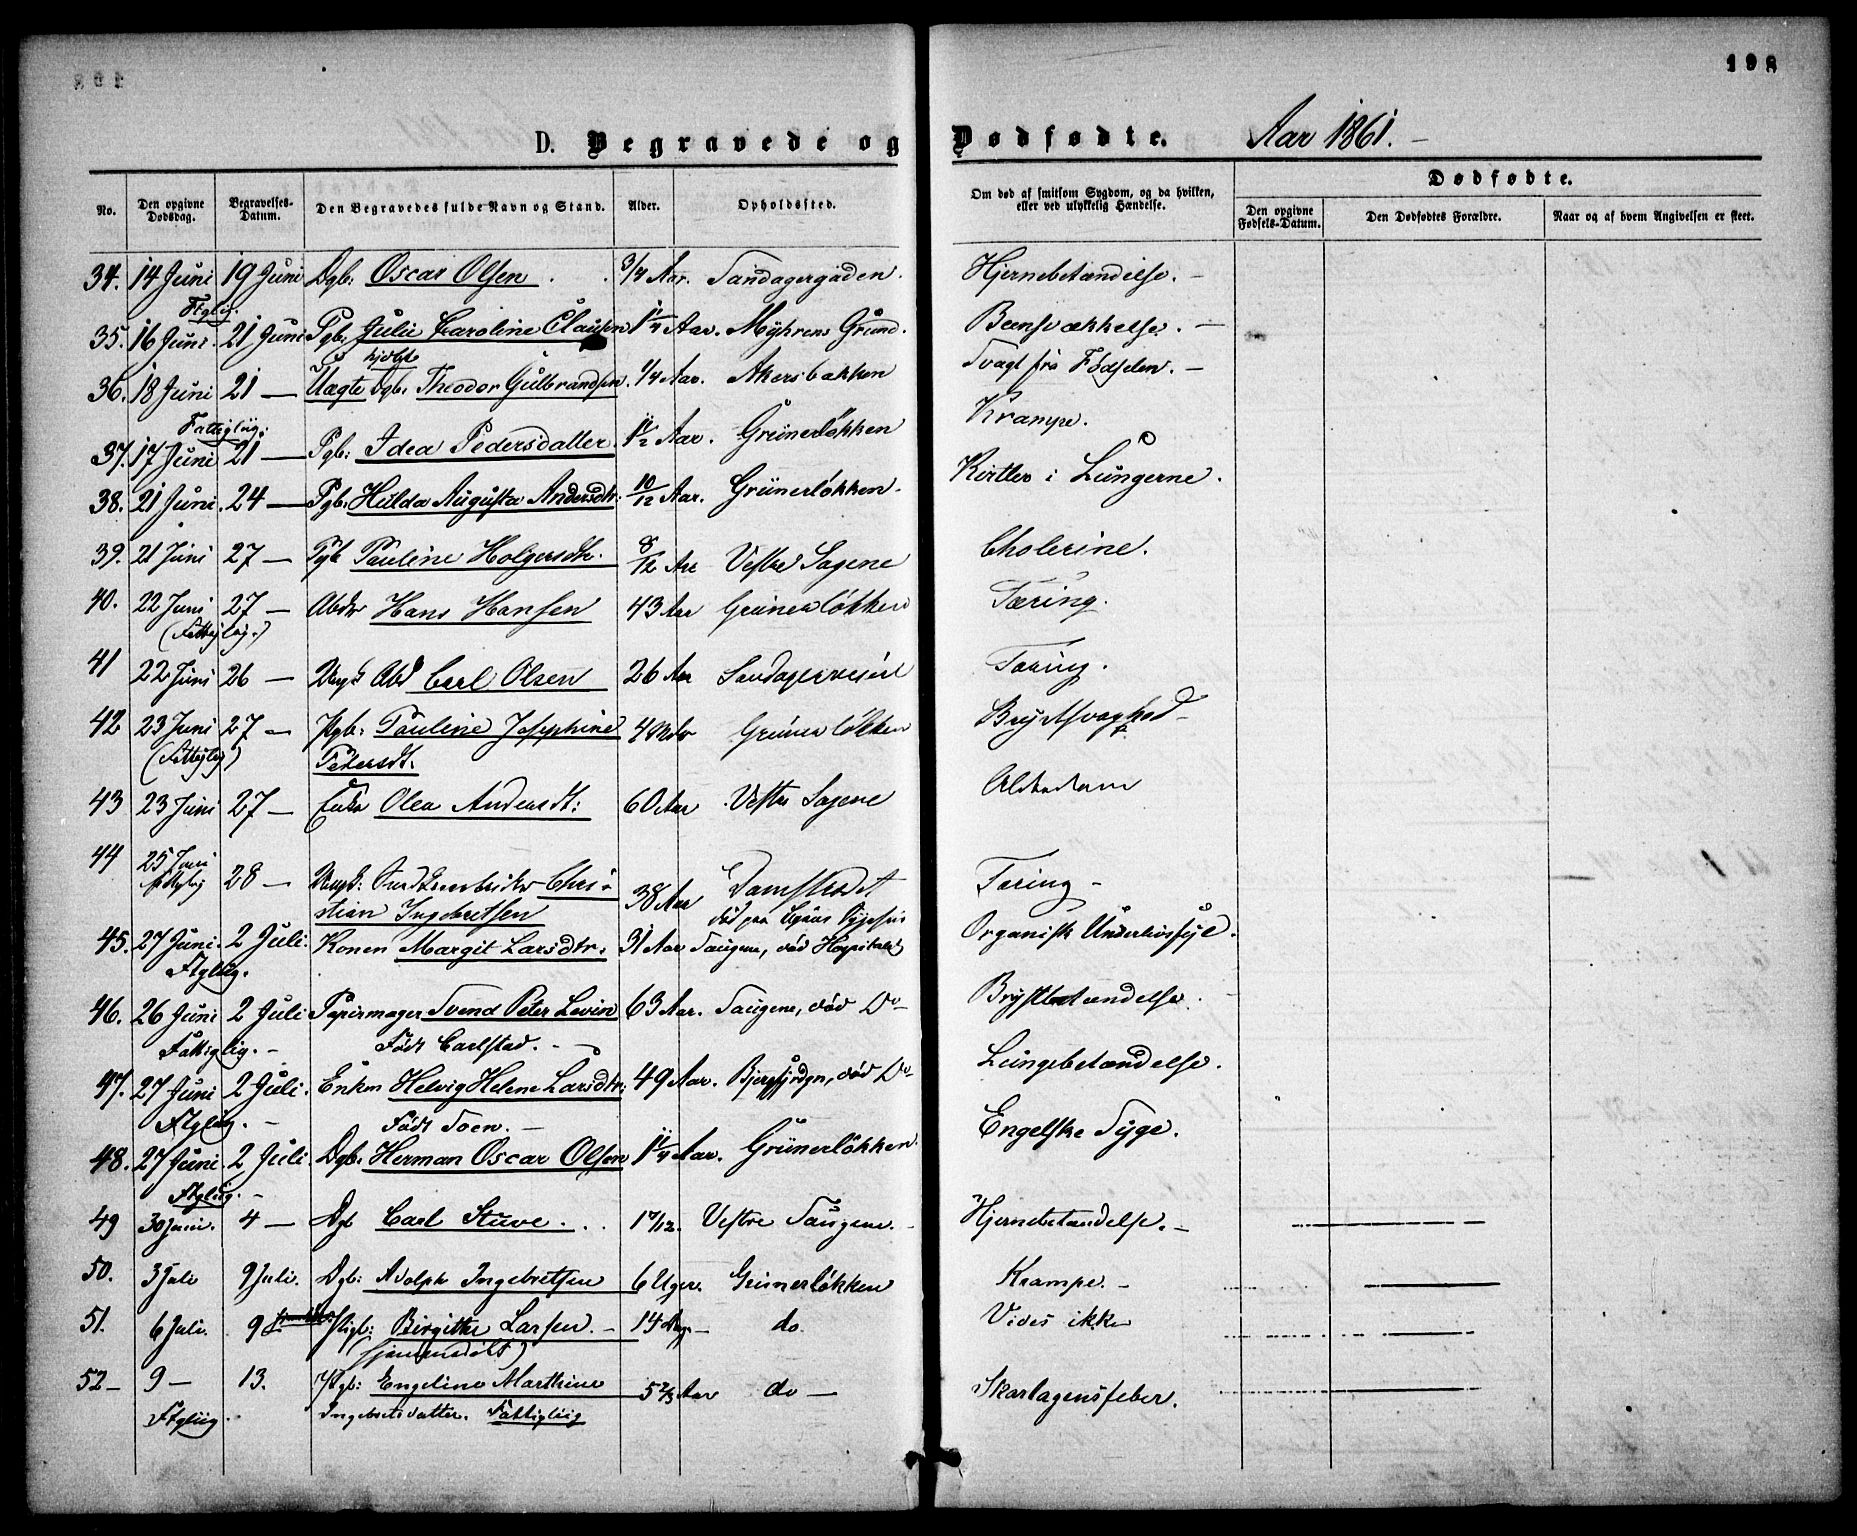 198
D. Begravede og Dødfødte. Aar 1861.
Dødfødte.
No. Den opgivne Dødsdag. Begravelses-Datum. Den Begravedes fulde Navn og Stand. Alder. Opholdssted. Om død af smitsom Sygdom, og da hvilken, eller ved ulykkelig Hændelse. Den opgivne Fødsels-Datum. Den Dødfødtes Forældre. Naar og af hvem Angivelsen er skeet.
34. 14 Juni 19 Juni Dgb: Oscar Olsen . . 3/4 Aar. Sandagergaden. Hjernebetændelse. -
Ftglig.
35. 16 Juni. 21 Juni Pgb. Julie Caroline Clausen 1 1/4 Aar. Myhrens Grund. Beensvækkelse. -
36. 18 Juni 21 — Uægte Dgb. Theodor Gulbrandsen. 1/4 Aar. Akersbakken Svagt fra Fødselen. -
Fattiglig:
37. 17 Juni 21 — Pgb: Idea Pedersdatter 1 1/2 Aar. Grünerløkken Krampe.
38. 21 Juni. 24 — Pgb. Hulda Augusta Andersdtr: 10/12 Aar. Grünerløkken. Kirtler i Lungerne.
39. 21 Juni 27 — Pgb Pauline Holgersdtr. 8/12 Aar Vestre Sagene Cholerine.
40. 22 Juni 27 — Hans Hansen 43 Aar Grünerløkken Tæring.
(Fattiglig.)
41 22 Juni 26 — Ungk Carl Olsen 26 Aar Sandagerveien Tæring.
42 23 Juni 27 — Pgb: Pauline Josephine 4 Mdr Grünerløkken Brystsvaghed
(Fattiglig) Pedersdt.
43 23 Juni 27 — Enke Olea Andersdt: 60 Aar Vestre Sagene Alderdom
44 25 Juni 28 — Ungk: Chri-
Fattiglig stian Ingebretsen 38 Aar Damstredet Tæring -
45. 27 Juni. 2 Juli. Konen Margit Larsdtr. 31 Aar Saugene, død Hospitalet Organisk Underlivssyge.
Ftglig.
46. 26 Juni 2 Juli Papirmager Svend Peter Levin 63 Aar. Saugene, død Do Brystbetændelse.
Fattiglig. - Født Carlstad. -
47. 27 Juni 2 Juli. Enken Helvig Helene Larsdtr: 49 Aar. død Do Lungebetændelse.
Ftglig. - Født Toen. -
48. 27 Juni 2 Juli. Dgb. Herman Oscar Olsen 1 1/4 Aar. Grünerløkken. Engelske Syge.
Ftglig. -
49 30 Juni. 4 — Dgb Carl Stuve . . . 1 7/12. Vestre Saugene. Hjernebetændelse. -
50. 3 Juli 9 Juli. Dgb: Adolph Ingebretsen 6 Uger. Grünerløkken Krampe. -
51. 6 Juli. 9 Pigb: Birgitte Larsen. - 14 Dage do Vides ikke
(hjemmedøbt)
52 - 9 - 13. Pgb: Engeline Marthine 5 2/3 Aar do — Skarlagensfeber.
Ftgliig. Ingebretsdatter. Fattigliig